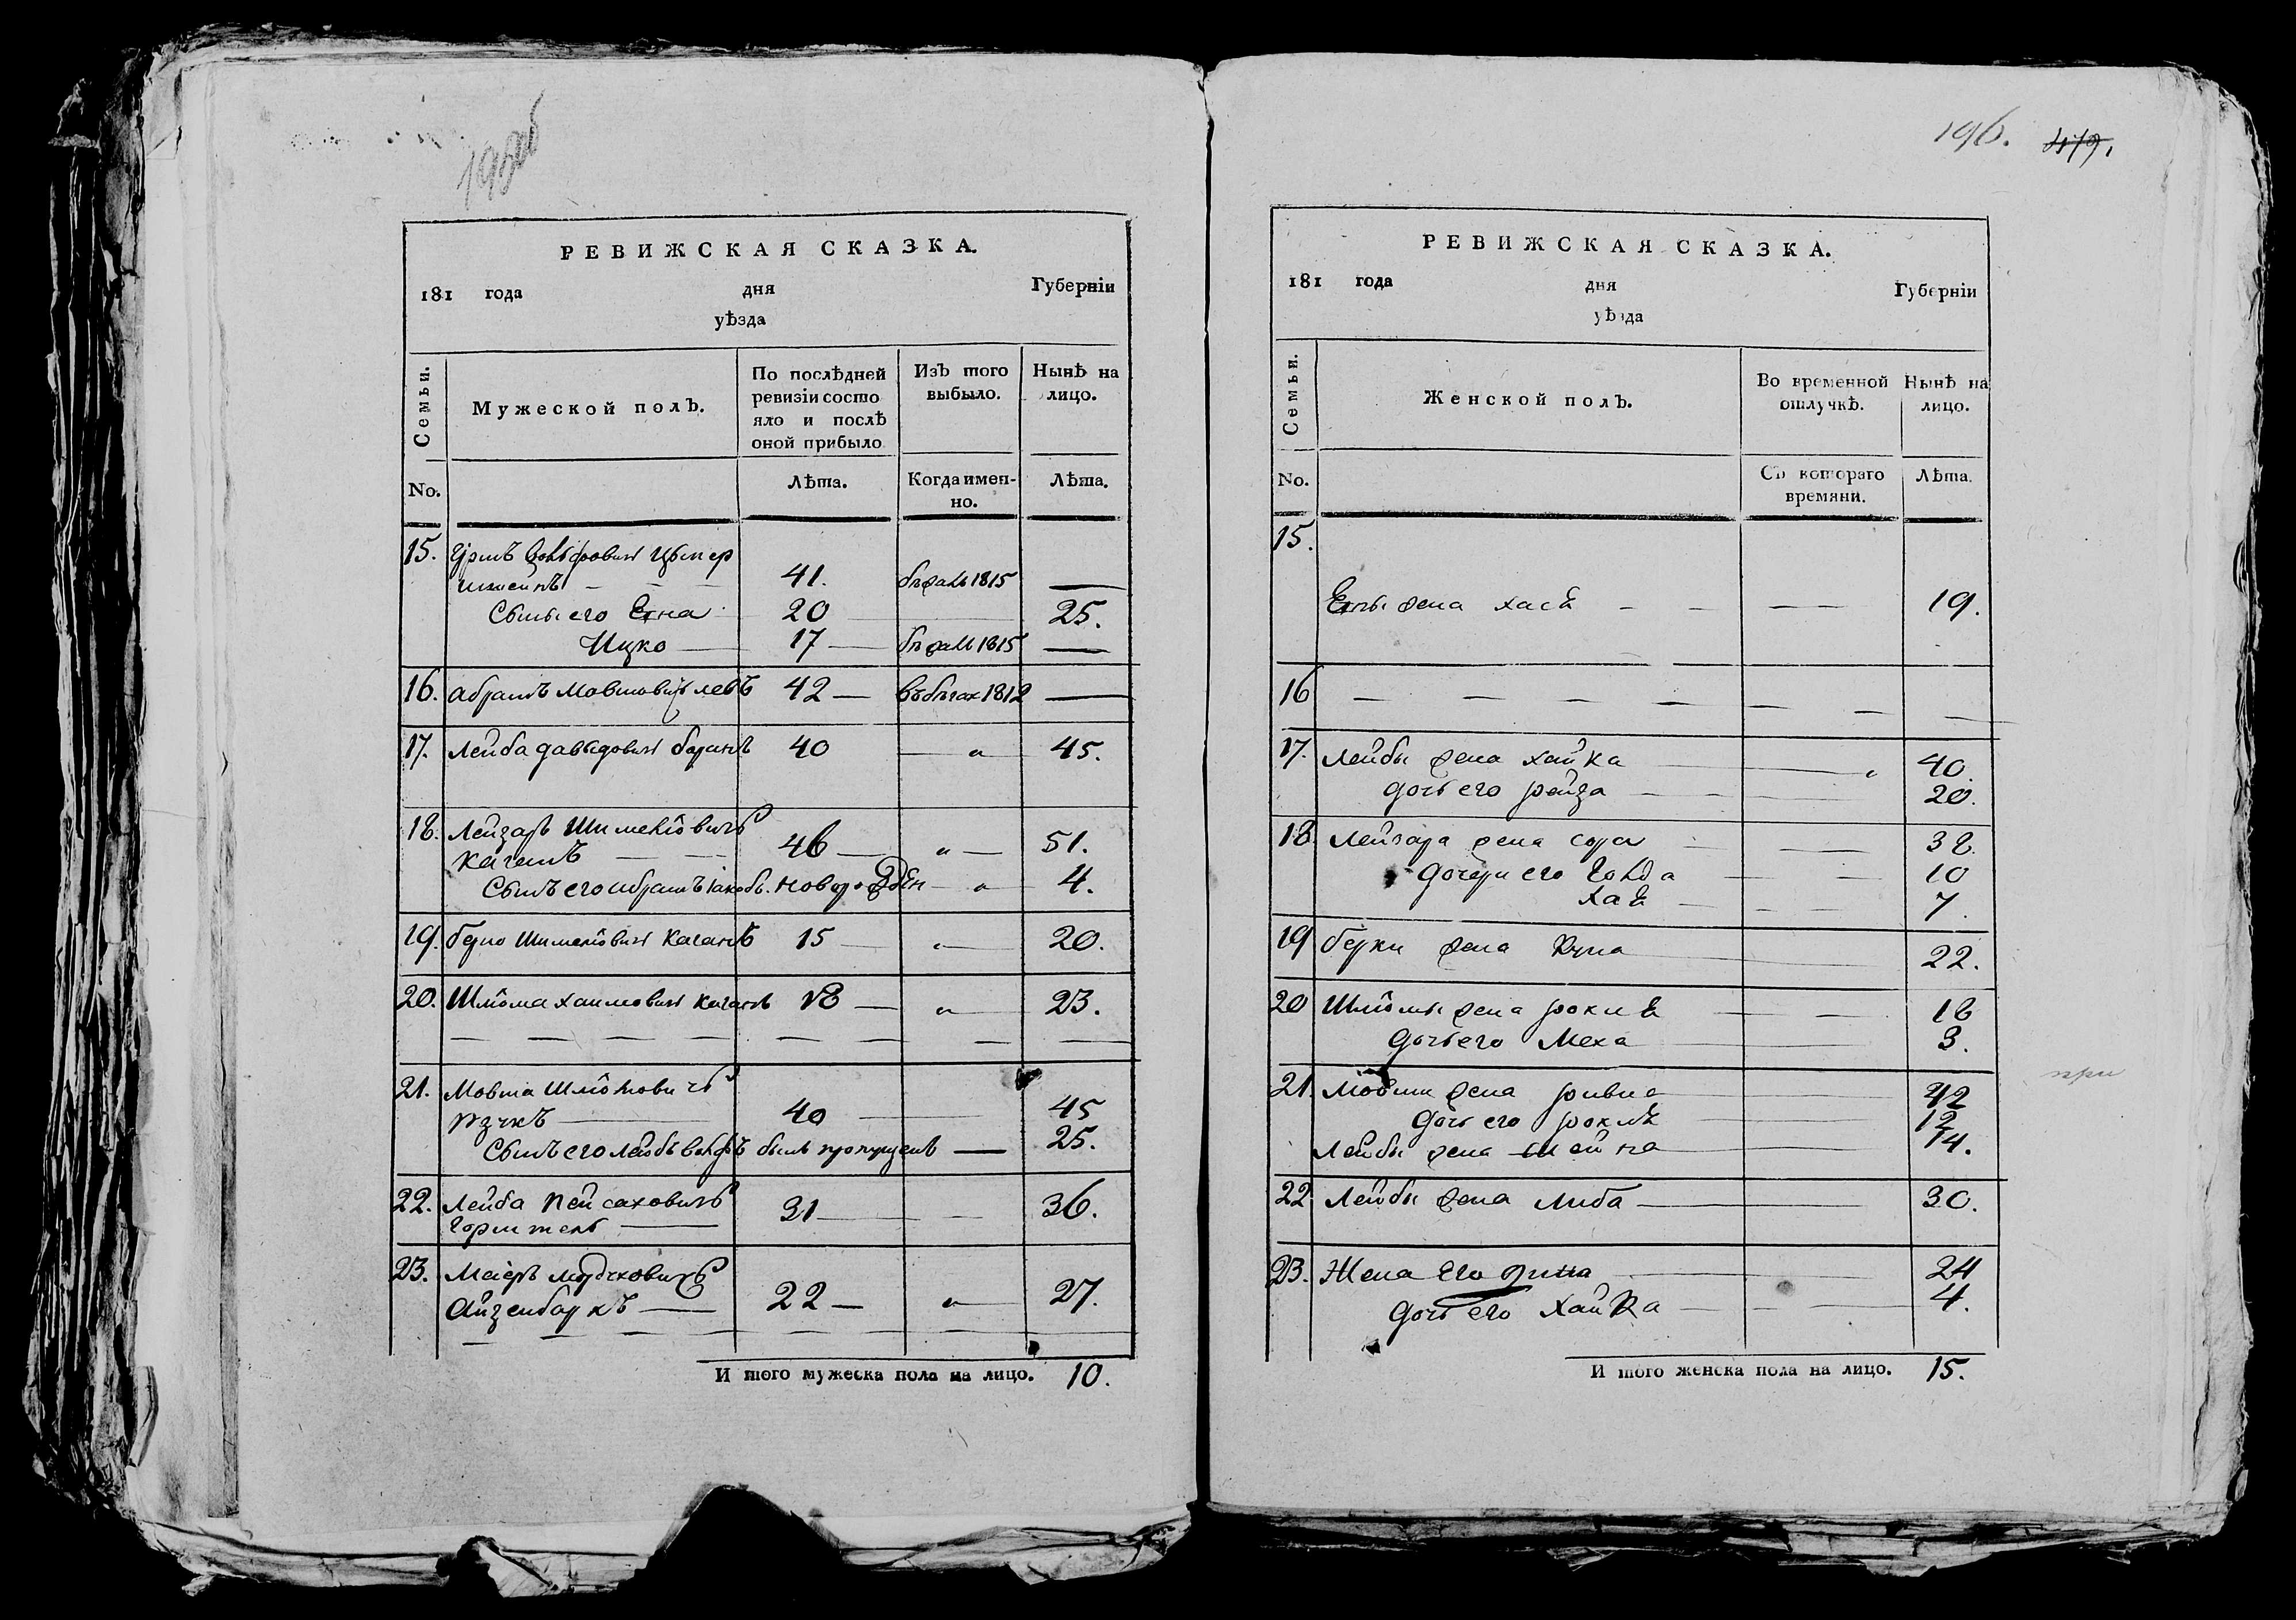 196. 479.
РЕВИЖСКАЯ СКАЗКА.
181 года дня Губерніи
уѣзда
Семьи. Мужеской полъ. По послѣдней ревизіи состояло и послѣ оной прибыло Изъ того выбыло. Нынѣ на лицо.
No. Лѣта. Когда именно. Лѣта.
15. Гершъ Вольфовичъ
41. 1815 —
Сынъ его Екна 20 25.
Ицко 17 1815 —
16. Абрамъ Мовшовичъ левъ 42 въ бѣгах 1812 —
17. Лейба давыдовичъ 40 „ 45.
18. Лейзаръ Шимелiовичъ
Каганъ 46 „ 51.
Сынъ его Абрамъ Iакобъ. новорожден „ 4.
19. Берко Шимелiовичъ Каганъ 15 „ 20.
20. Шлiома хаимовичъ Каганъ 18 „ 23.
21. Мовша Шлiомовичъ
40 45
Сынъ его Лейбъ Вольфъ былъ пропущенъ — 25.
22. Лейба Пейсаховичъ
31 36.
23. Меiеръ Мордуховичъ
Айзенбаркъ 22 „ 27.
И того мужеска пола на лицо. 10.
РЕВИЖСКАЯ СКАЗКА.
181 года дня Губерніи
уѣзда
Семьи. Женской полъ. Во временной отлучкѣ. Нынѣ на лицо.
No. Съ котораго времяни. Лѣта.
15.
Екны жена хася 19.
16
17. Лейбы жена хайка „ 40.
дочь его рейза 20.
18. Лейзара жена сора 38.
дочери его Голда 10
Хая 7.
19 Берки жена 22.
20 Шлiомы жена рохля 18
дочь его Меха 3.
21. Мовши жена ривка 42
дочь его рохля 12
Лейбы жена шейна 14.
при
22. Лейбы жена Либа 30.
23. Жена его 24
дочь его Хайка 4.
И того женска пола на лицо. 15.